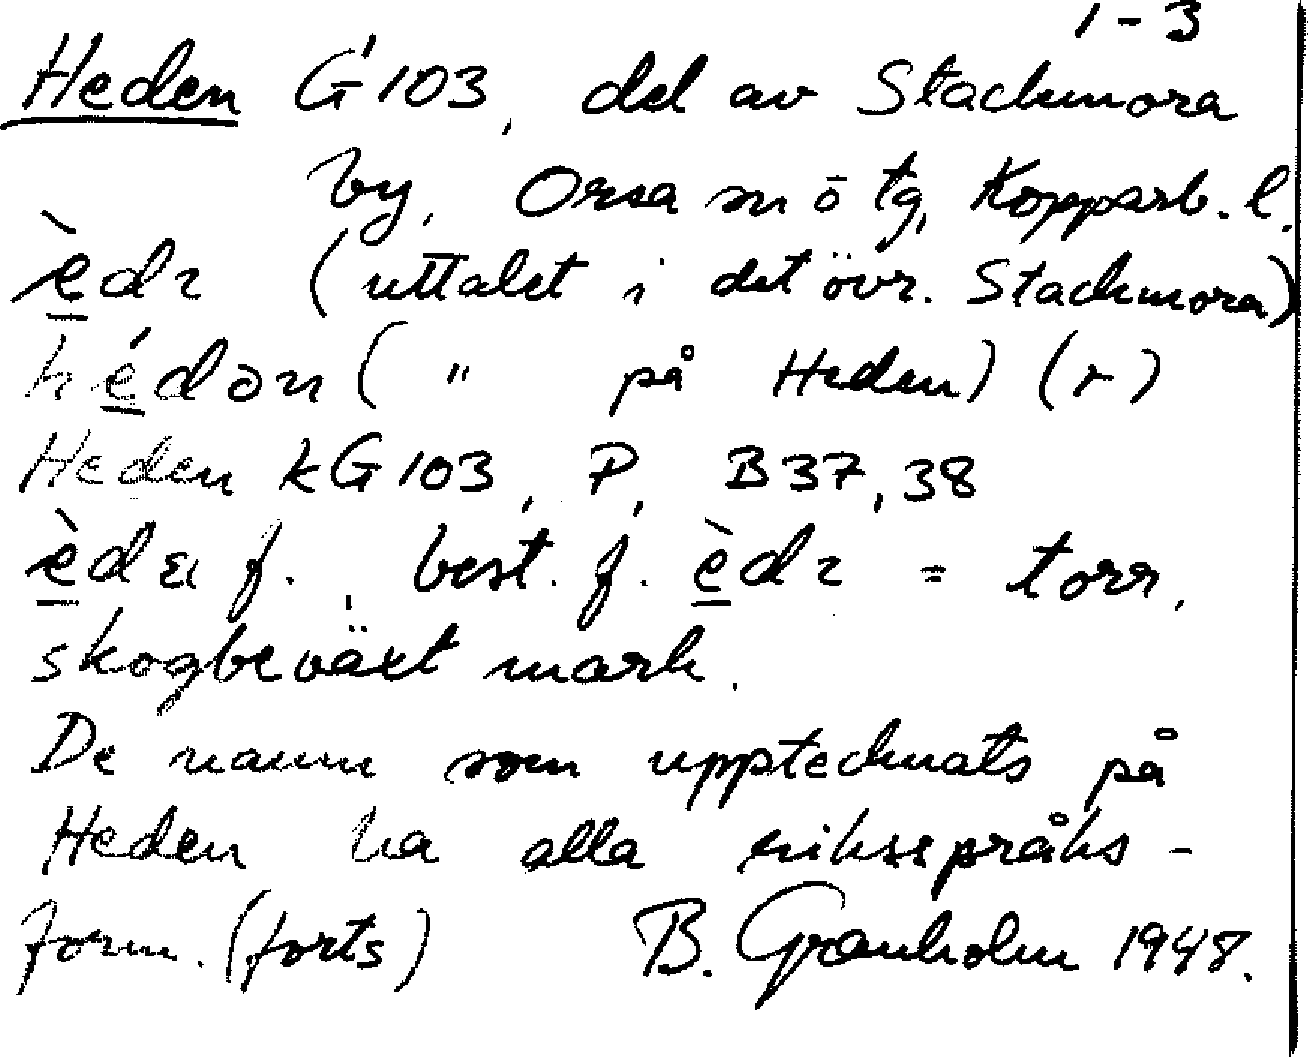 1-3
Heden G'103, del av Stackmora
by, Orsa sn ō tg, Kopparb. l.
è̱dɿ (uttalet i det övr. Stackmora)
hé̱dən ( " på Heden) (r)
Heden kG103, P, B37,38
è̱d f., best. f. è̱dɿ = torr,
skogbeväxt mark.
De namn som upptecknats på
Heden ha alla riksspråks-
form. (forts) B. Granholm 1948.